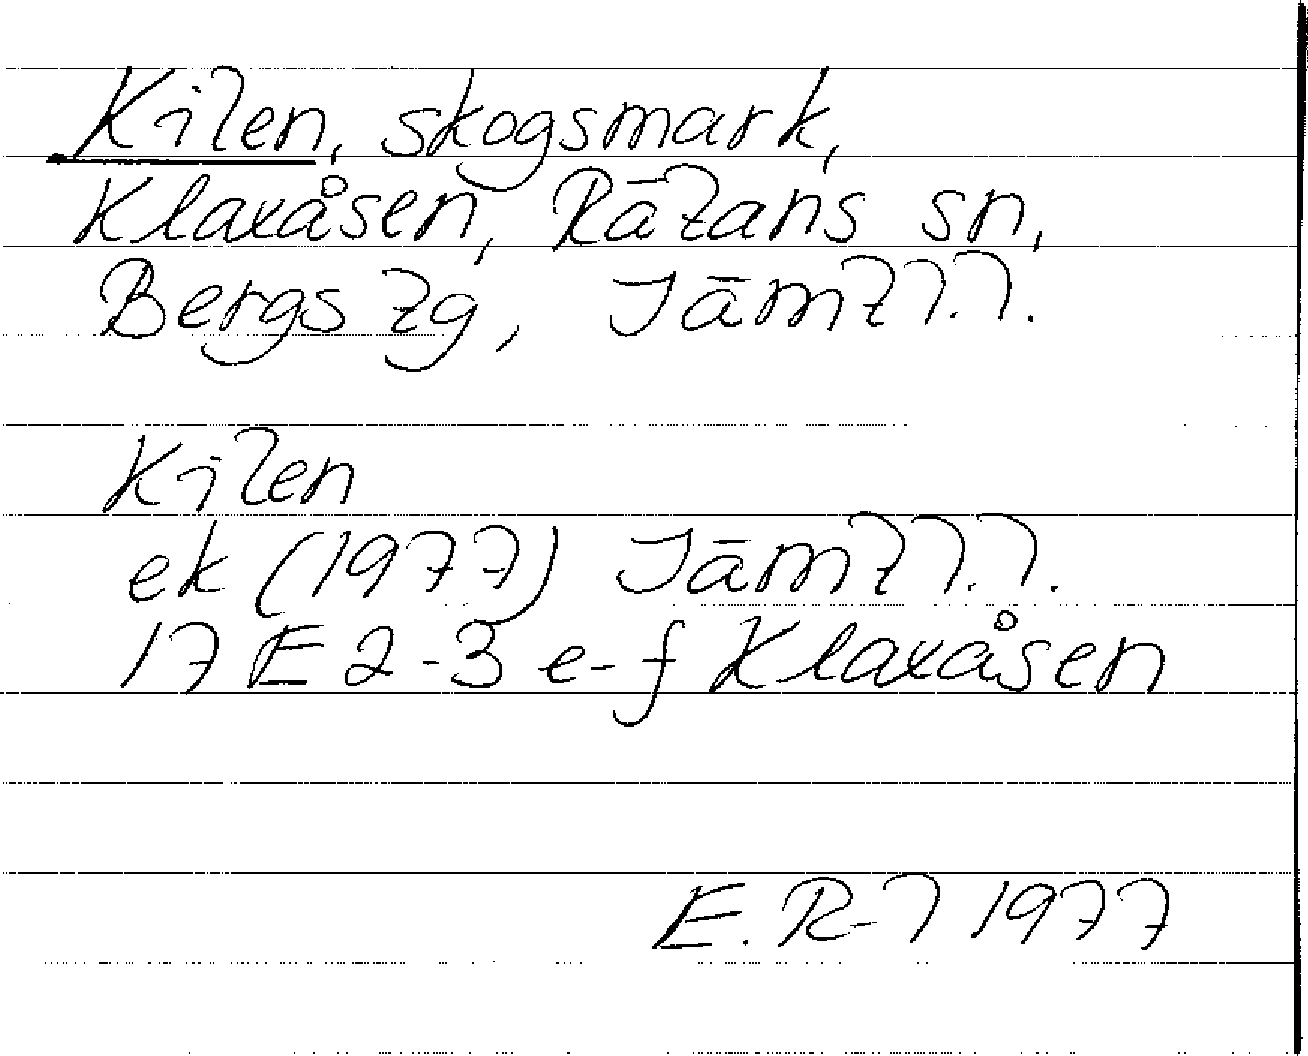 Kilen, skogsmark,
Klaxåsen, Rätans sn,
Bergs tg, Jämtl.l.
Kilen
ek (1977) Jämtl.l.
17 E 2-3 e-f Klaxåsen
E. R-l 1977